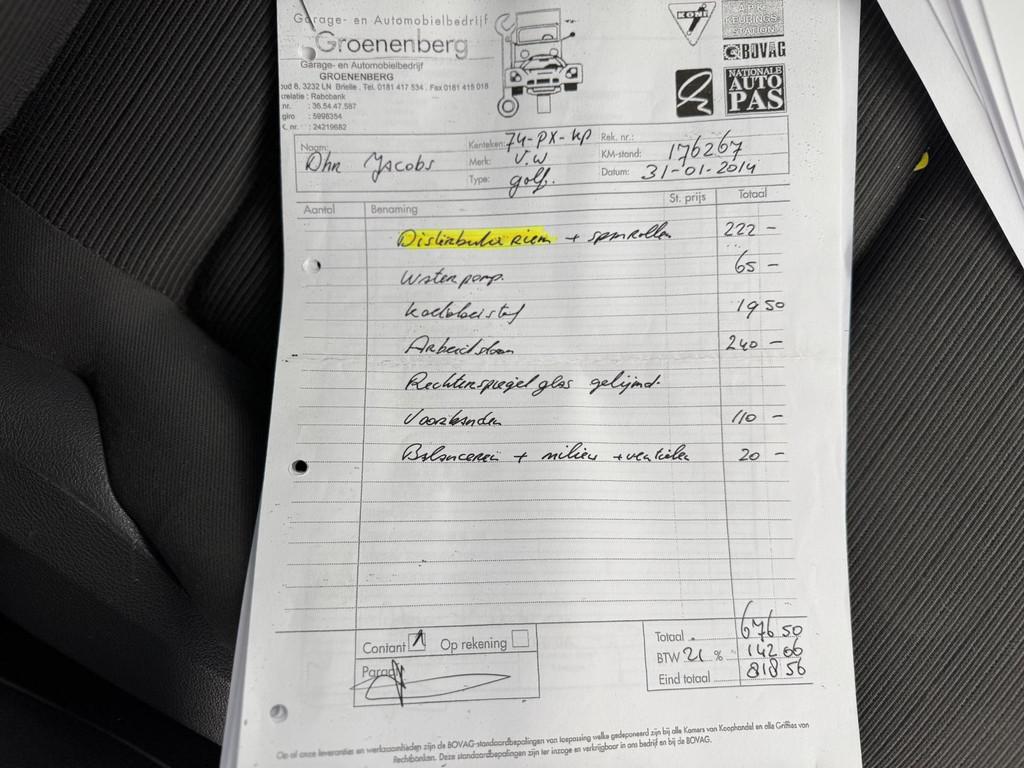 Garage- en Automobielbedrijf
Groenenberg
Garage- en Automobielbedrijf
GROENENBERG
oud 8, 3232 LN Brielle . Tel. 0181 417 534 . Fax 0181 415 018
relatie : Rabobank
nr. : 36.54.47.587
giro : 5998354
nr. : 24219682
KONI
A.P.K.
KEURINGS-
STATION
BOVAG
NATIONALE
AUTO
PAS
Naam: Dhr Jacobs
Kenteken: 74-PX-KP
Merk: V.W
Type: golf.
Rek. nr.:
KM-stand: 176267
Datum: 31-01-2014
Aantal Benaming St. prijs Totaal
Distributie riem + spanrollen 222 -
Waterpomp. 65 -
Koelvloeistof 19 50
Arbeidsloon 240 -
Rechterspiegel glas gelijmd.
Voorbanden 110 -
Balanceren + milieu + ventielen 20 -
Contant Op rekening
Paraaf
Totaal 676 50
BTW 21 % 142 06
Eind totaal 818 56
Op al onze leveranties en werkzaamheden zijn de BOVAG-standaardbepalingen van toepassing welke gedeponeerd zijn bij alle Kamers van Koophandel en alle Griffies van
Rechtbanken. Deze standaardbepalingen zijn ter inzage en verkrijgbaar in ons bedrijf en bij de BOVAG.